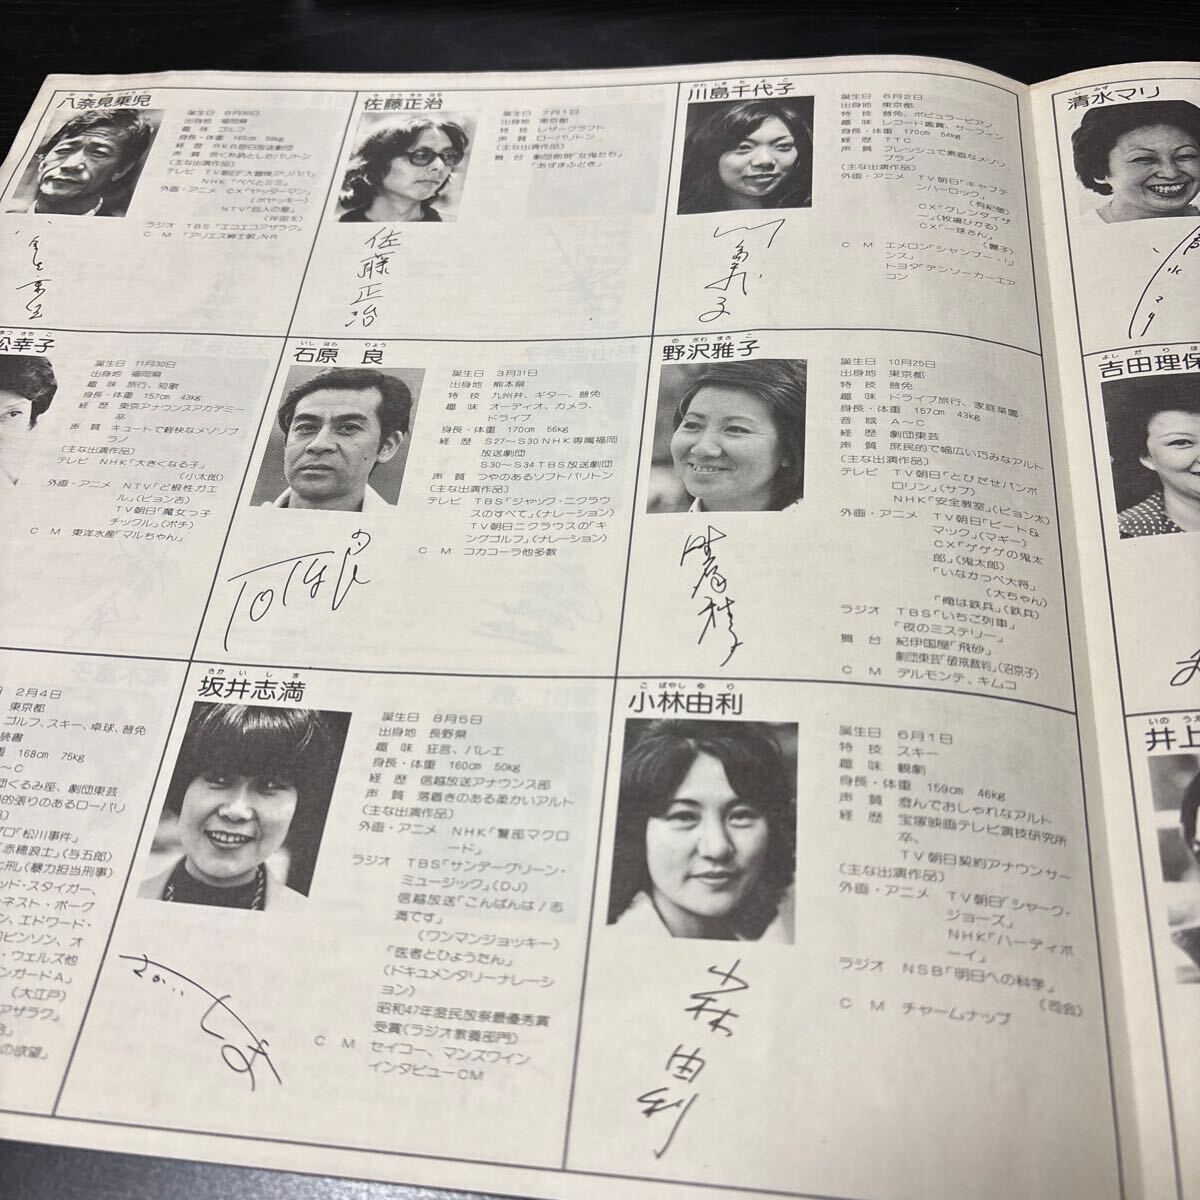 やなみじょうじ
八奈見乗児
誕生日 8月30日
出身地 福岡県
趣 味 ゴルフ
身長・体重 165cm 58kg
経 歴 RKB毎日放送劇団
声 質 渋く朴訥としたバリトン
(主な出演作品)
テレビ TV朝日「大冒険アリババ」
NHK「ペペとミミ」
外画・アニメ CX「ヤッターマン」
(ボヤッキー)
NTV「巨人の星」
(伴宙太)
ラジオ TBS「エコエコアザラク」
C M 「アリエス紳士服」NR
さとうまさはる
佐藤正治
誕生日 7月1日
出身地 東京都
特 技 レザークラフト
声 質 ローバリトン
(主な出演作品)
舞 台 劇団創現「女鬼たち」
「あずまふどき」
佐藤正治
かわしまちよこ
川島千代子
誕生日 6月2日
出身地 東京都
特 技 普免、ポピュラーピアノ
趣 味 レコード鑑賞、サーフィン
身長・体重 170cm 54kg
経 歴 TTC
声 質 フレッシュで素直なメゾソ
プラノ
(主な出演作品)
外画・アニメ TV朝日「キャプテ
ンハーロック」
(有紀螢)
CX「グレンダイザ
ー」(牧場ひかる)
CX「一球さん」
(麗子)
C M エメロン「シャンプー・リ
ンス」
トヨタ「デンソーカーエア
コン
しみず
清水マリ
松幸子
誕生日 11月30日
出身地 福岡県
趣 味 旅行、短歌
身長・体重 157cm 43kg
経 歴 東京アナウンスアカデミー
卒
声 質 キュートで軽快なメゾソプ
ラノ
(主な出演作品)
テレビ NHK「大きくなる子」
(小太郎)
外画・アニメ NTV「ど根性ガエ
ル」(ピョン吉)
TV朝日「魔女っ子
チックル」(ポチ)
C M 東洋水産「マルちゃん」
いしはら りょう
石原 良
誕生日 3月31日
出身地 熊本県
特 技 九州弁、ギター、普免
趣 味 オーディオ、カメラ、
ドライブ
身長・体重 170cm 56kg
経 歴 S27〜S30NHK専属福岡
放送劇団
S30〜S34TBS放送劇団
声 質 つやのあるソフトバリトン
(主な出演作品)
テレビ TBS「ジャック・ニクラウ
スのすべて」(ナレーション)
TV朝日ニクラウスの「キ
ングゴルフ」(ナレーション)
C M コカコーラ他多数
のざわまさこ
野沢雅子
誕生日 10月25日
出身地 東京都
特 技 普免
趣 味 ドライブ旅行、家庭菜園
身長・体重 157cm 43kg
音 域 A〜C
経 歴 劇団東芸
声 質 庶民的で幅広い巧みなアルト
(主な出演作品)
テレビ TV朝日「とびだせパンポ
ロリン」(サブ)
NHK「安全教室」(ピョン太)
外画・アニメ TV朝日「ビート&
マック」(マギー)
CX「ゲゲゲの鬼太
郎」(鬼太郎)
「いなかっぺ大将」
(大ちゃん)
「俺は鉄兵」(鉄兵)
ラジオ TBS「いちご列車」
「夜のミステリー」
舞 台 紀伊国屋「飛砂」
劇団東芸「破戒裁判」(沼京子)
C M デルモンテ、キムコ
よしだりほ
吉田理保
2月4日
東京都
ゴルフ、スキー、卓球、普免
読書
重 168cm 75kg
〜C
団くるみ座、劇団東芸
的張りのあるローバリ
プロ「松川事件」
「赤穂浪士」(与五郎)
刑」(暴力担当刑事)
ッド・スタイガー、
ーネスト・ボーグ
ン、エドワード・
ロビンソン、オ
・ウェルズ他
ンガードA」
(大江戸)
アザラク」
の欲望」
さかいしま
坂井志満
誕生日 8月5日
出身地 長野県
趣 味 狂言、バレエ
身長・体重 160cm 50kg
経 歴 信越放送アナウンス部
声 質 落着きのある柔かいアルト
(主な出演作品)
外画・アニメ NHK「警部マクロ
ード」
ラジオ TBS「サンデーグリーン・
ミュージック」(DJ)
信越放送「こんばんは!志
満です」
(ワンマンジョッキー)
「医者とひょうたん」
(ドキュメンタリーナレーシ
ョン)
昭和47年度民放祭最優秀賞
受賞(ラジオ教養部門)
C M セイコー、マンズワイン
インタビューCM
こばやしゆり
小林由利
誕生日 6月1日
特 技 スキー
趣 味 観劇
身長・体重 159cm 46kg
声 質 澄んでおしゃれなアルト
経 歴 宝塚映画テレビ演技研究所
卒、
TV朝日契約アナウンサー
(主な出演作品)
外画・アニメ TV朝日「シャーク・
ジョーズ」
NHK「ハーディボ
ーイ」
ラジオ NSB「明日への科学」
(司会)
C M チャームナップ
小林由利
いのうえ
井上